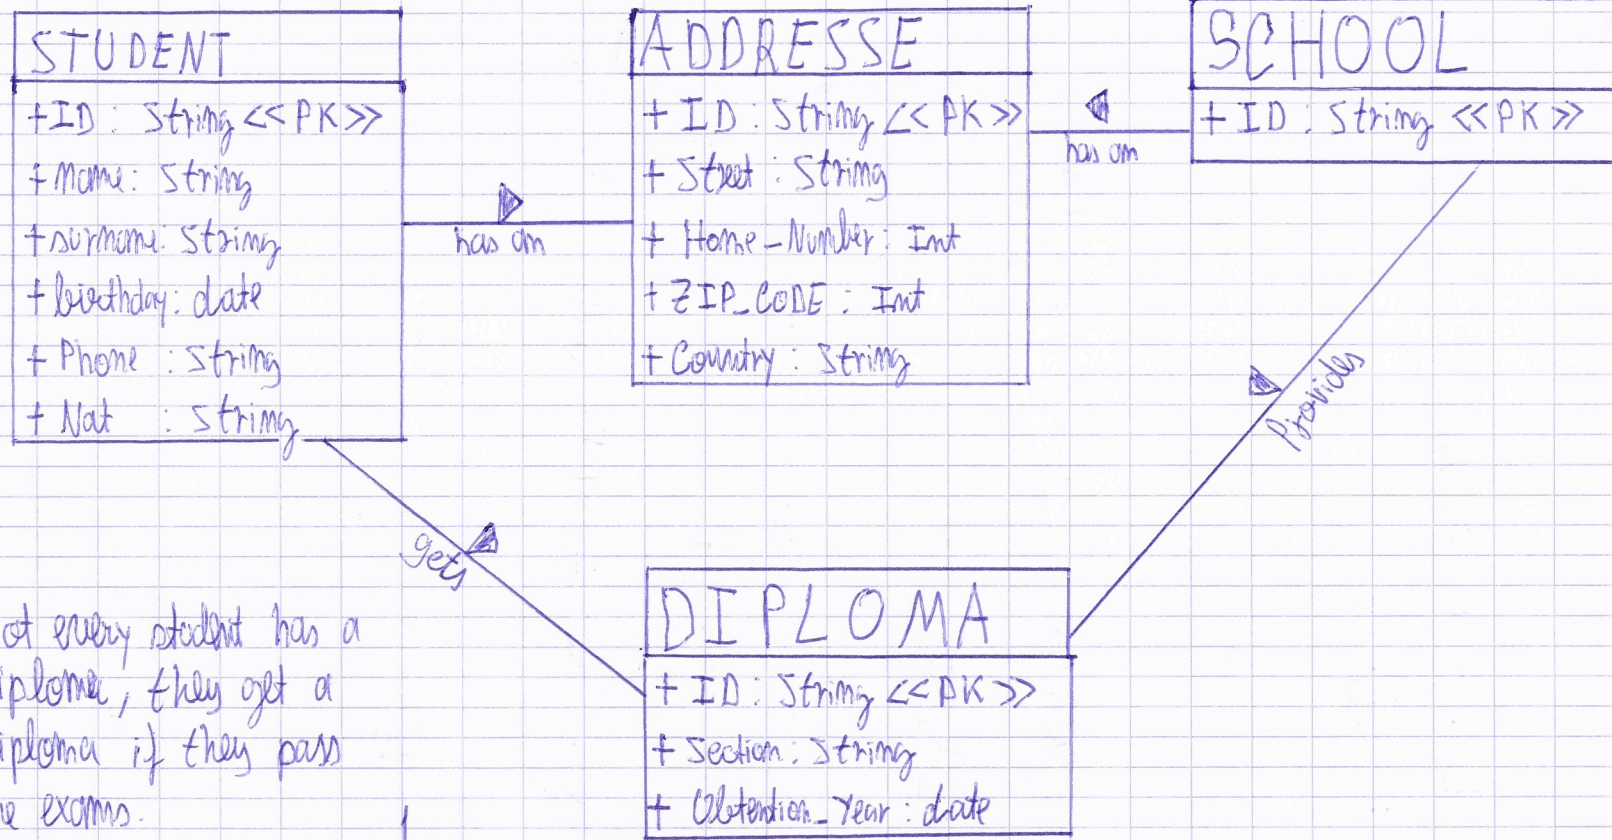 STUDENT
+ID : String <<PK>>
+ Name: String
+ surname: String
+ birthday: date
+ Phone : String
+ Nat : String
has an
ADDRESSE
+ ID : String <<PK>>
+ Street : String
+ Home_Number: Int
+ ZIP_CODE : Int
+ Country : String
has an
SCHOOL
+ ID : String <<PK>>
Provides
gets
DIPLOMA
+ ID : String <<PK>>
+ Section : String
+ Obtention_Year : date
ot every student has a
iploma, they get a
iploma if they pass
e exams.